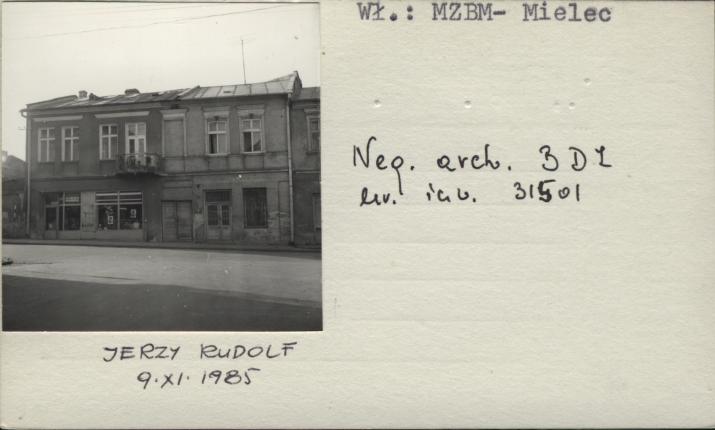 Wł.: MZBM- Mielec
Neg. arch. BDZ
nr. inw. 31501
JERZY RUDOLF
9.XI.1985